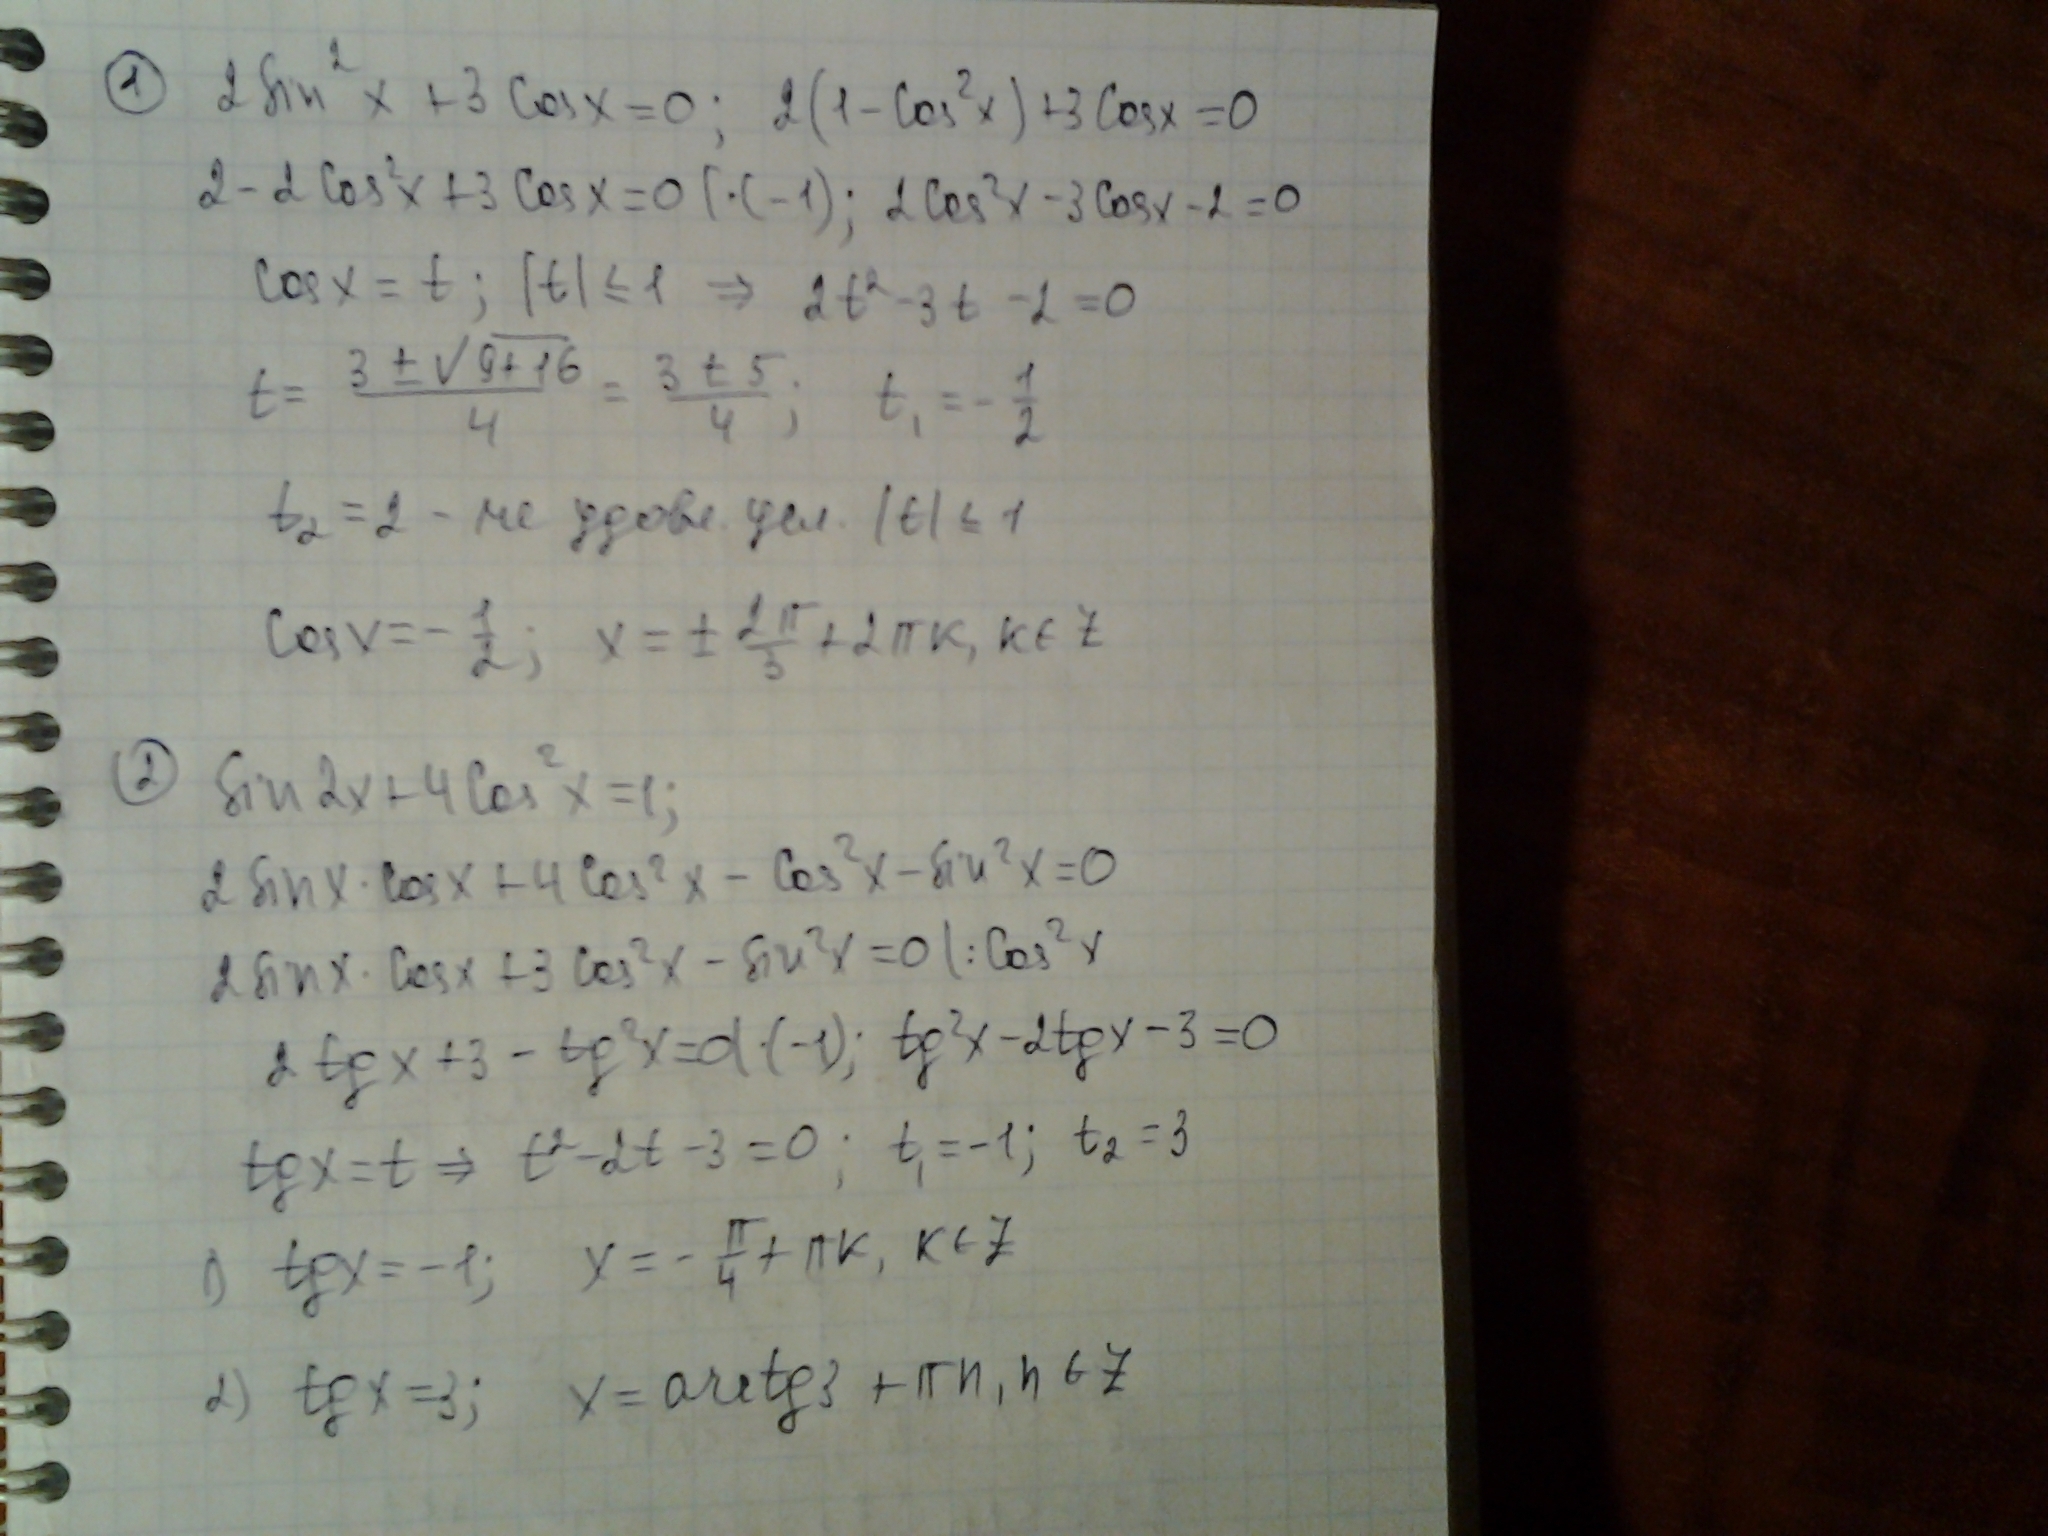 ① 2 Sin² x + 3 Cos x = 0; 2(1 - Cos² x) + 3 Cos x = 0
2 - 2 Cos² x + 3 Cos x = 0 |·(-1); 2 Cos² x - 3 Cos x - 2 = 0
Cos x = t; |t| ≤ 1 ⇒ 2t² - 3t - 2 = 0
t = (3 ± √(9+16))/4 = (3 ± 5)/4; t₁ = -1/2
t₂ = 2 - не удовл. усл. |t| ≤ 1
Cos x = -1/2; x = ± 2π/3 + 2πk, k ∈ Z
② Sin 2x + 4 Cos² x = 1;
2 Sin x · Cos x + 4 Cos² x - Cos² x - Sin² x = 0
2 Sin x · Cos x + 3 Cos² x - Sin² x = 0 |: Cos² x
2 tg x + 3 - tg² x = 0 |·(-1); tg² x - 2 tg x - 3 = 0
tg x = t ⇒ t² - 2t - 3 = 0; t₁ = -1; t₂ = 3
1) tg x = -1; x = -π/4 + πk, k ∈ Z
2) tg x = 3; x = arctg 3 + πn, n ∈ Z